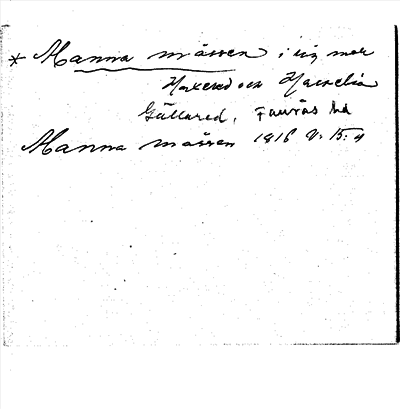 * Manna mässen i sig mar
Hakered och Hjärelia
Gällared, Faurås hd
Manna mässen 1816 V: 15: 4